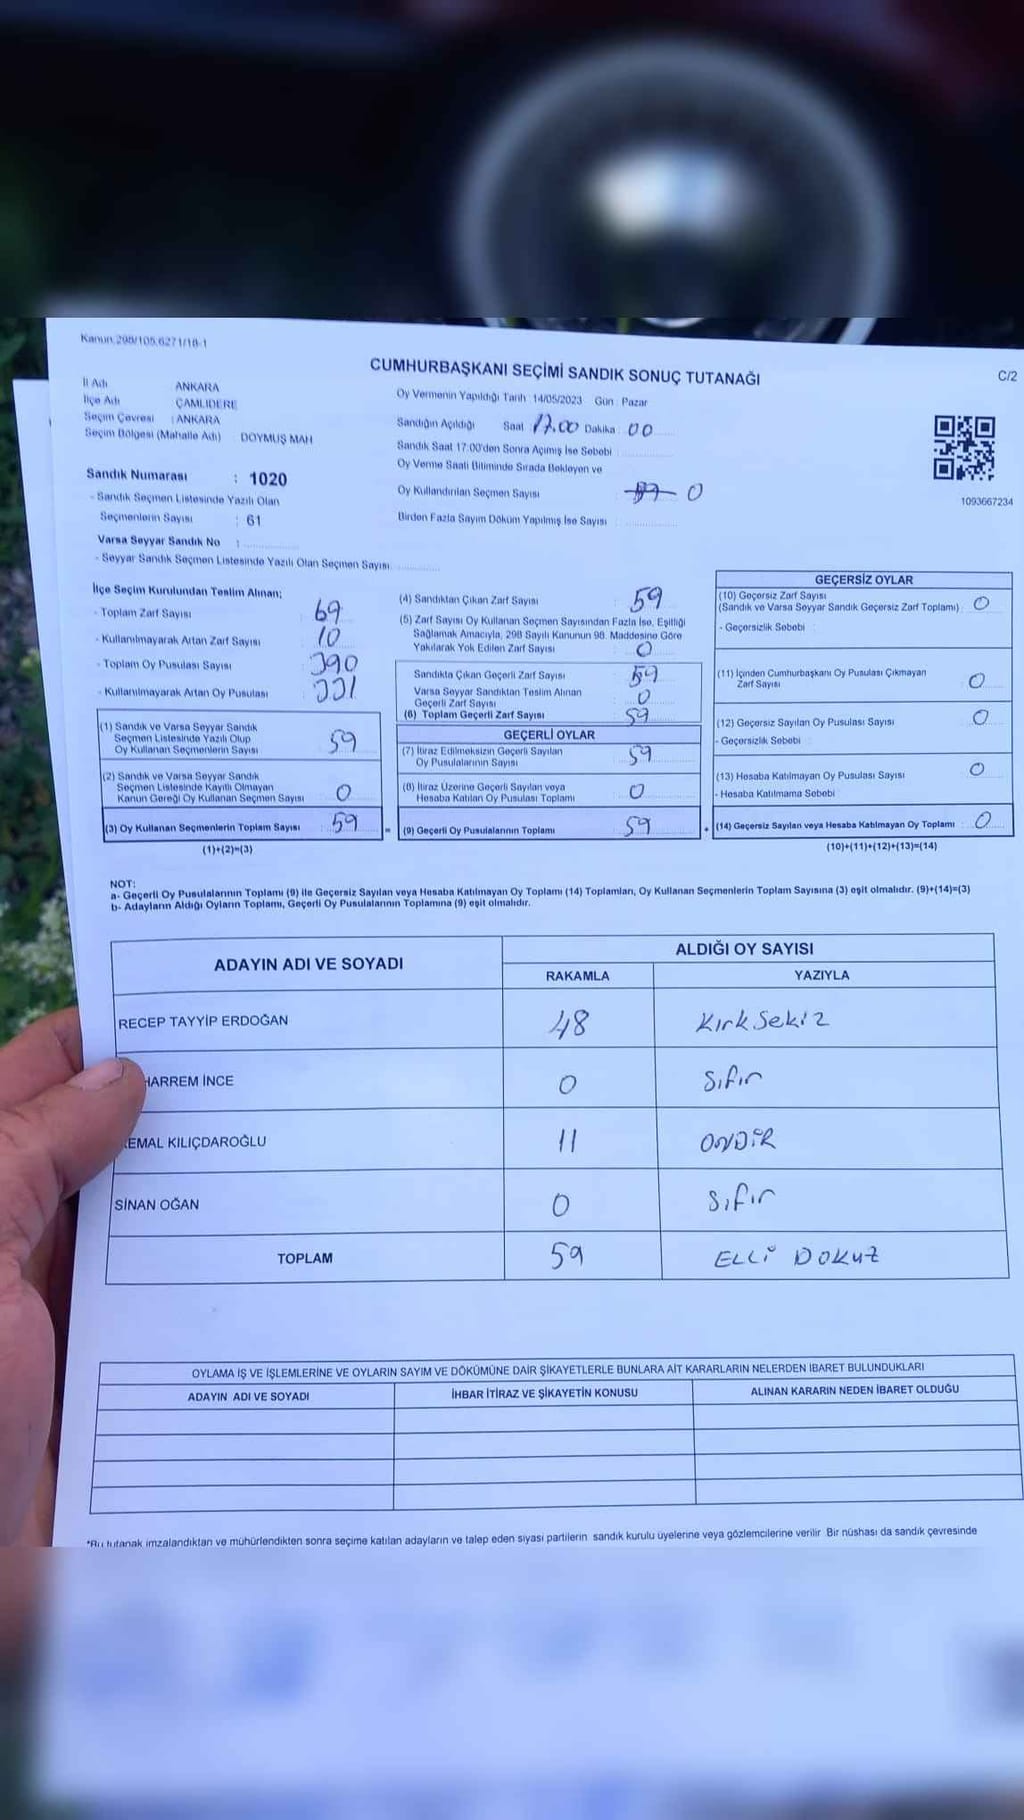 Kanun.298/105,6271/18-1
CUMHURBAŞKANI SEÇİMİ SANDIK SONUÇ TUTANAĞI
C/2
İl Adı ANKARA
İlçe Adı ÇAMLIDERE
Seçim Çevresi : ANKARA
Seçim Bölgesi (Mahalle Adı) DOYMUŞ MAH
Sandık Numarası : 1020
- Sandık Seçmen Listesinde Yazılı Olan
Seçmenlerin Sayısı : 61
Varsa Seyyar Sandık No :
- Seyyar Sandık Seçmen Listesinde Yazılı Olan Seçmen Sayısı
Oy Vermenin Yapıldığı Tarih 14/05/2023 Gün : Pazar
Sandığın Açıldığı Saat 17.00 Dakika : 00
Sandık Saat 17:00'den Sonra Açımış İse Sebebi
Oy Verme Saati Bitiminde Sırada Bekleyen ve
Oy Kullandırılan Seçmen Sayısı 0
Birden Fazla Sayım Döküm Yapılmış İse Sayısı :
1093667234
İlçe Seçim Kurulundan Teslim Alınan;
- Toplam Zarf Sayısı 69
- Kullanılmayarak Artan Zarf Sayısı 10
- Toplam Oy Pusulası Sayısı 390
- Kullanılmayarak Artan Oy Pusulası 331
(1) Sandık ve Varsa Seyyar Sandık
Seçmen Listesinde Yazılı Olup
Oy Kullanan Seçmenlerin Sayısı 59
(2) Sandık ve Varsa Seyyar Sandık
Seçmen Listesinde Kayıtlı Olmayan
Kanun Gereği Oy Kullanan Seçmen Sayısı 0
(3) Oy Kullanan Seçmenlerin Toplam Sayısı : 59
(1)+(2)=(3)
(4) Sandıktan Çıkan Zarf Sayısı 59
(5) Zarf Sayısı Oy Kullanan Seçmen Sayısından Fazla İse, Eşitliği
Sağlamak Amacıyla, 298 Sayılı Kanunun 98. Maddesine Göre
Yakılarak Yok Edilen Zarf Sayısı 0
Sandıkta Çıkan Geçerli Zarf Sayısı 59
Varsa Seyyar Sandıktan Teslim Alınan
Geçerli Zarf Sayısı 0
(6) Toplam Geçerli Zarf Sayısı 59
GEÇERLİ OYLAR
(7) İtiraz Edilmeksizin Geçerli Sayılan
Oy Pusulalarının Sayısı 59
(8) İtiraz Üzerine Geçerli Sayılan veya
Hesaba Katılan Oy Pusulası Toplamı 0
= (9) Geçerli Oy Pusulalarının Toplamı 59
GEÇERSİZ OYLAR
(10) Geçersiz Zarf Sayısı
(Sandık ve Varsa Seyyar Sandık Geçersiz Zarf Toplamı) : 0
- Geçersizlik Sebebi :
(11) İçinden Cumhurbaşkanı Oy Pusulası Çıkmayan
Zarf Sayısı 0
(12) Geçersiz Sayılan Oy Pusulası Sayısı 0
- Geçersizlik Sebebi
(13) Hesaba Katılmayan Oy Pusulası Sayısı 0
- Hesaba Katılmama Sebebi
+ (14) Geçersiz Sayılan veya Hesaba Katılmayan Oy Toplamı : 0
(10)+(11)+(12)+(13)=(14)
NOT:
a- Geçerli Oy Pusulalarının Toplamı (9) ile Geçersiz Sayılan veya Hesaba Katılmayan Oy Toplamı (14) Toplamları, Oy Kullanan Seçmenlerin Toplam Sayısına (3) eşit olmalıdır. (9)+(14)=(3)
b- Adayların Aldığı Oyların Toplamı, Geçerli Oy Pusulalarının Toplamına (9) eşit olmalıdır.
ADAYIN ADI VE SOYADI ALDIĞI OY SAYISI
RAKAMLA YAZIYLA
RECEP TAYYİP ERDOĞAN 48 Kırk Sekiz
HARREM İNCE 0 Sıfır
EMAL KILIÇDAROĞLU 11 ONBİR
SİNAN OĞAN 0 Sıfır
TOPLAM 59 ELLİ DOKUZ
OYLAMA İŞ VE İŞLEMLERİNE VE OYLARIN SAYIM VE DÖKÜMÜNE DAİR ŞİKAYETLERLE BUNLARA AİT KARARLARIN NELERDEN İBARET BULUNDUKLARI
ADAYIN ADI VE SOYADI İHBAR İTİRAZ VE ŞİKAYETİN KONUSU ALINAN KARARIN NEDEN İBARET OLDUĞU
*Bu tutanak imzalandıktan ve mühürlendikten sonra seçime katılan adayların ve talep eden siyasi partilerin sandık kurulu üyelerine veya gözlemcilerine verilir Bir nüshası da sandık çevresinde